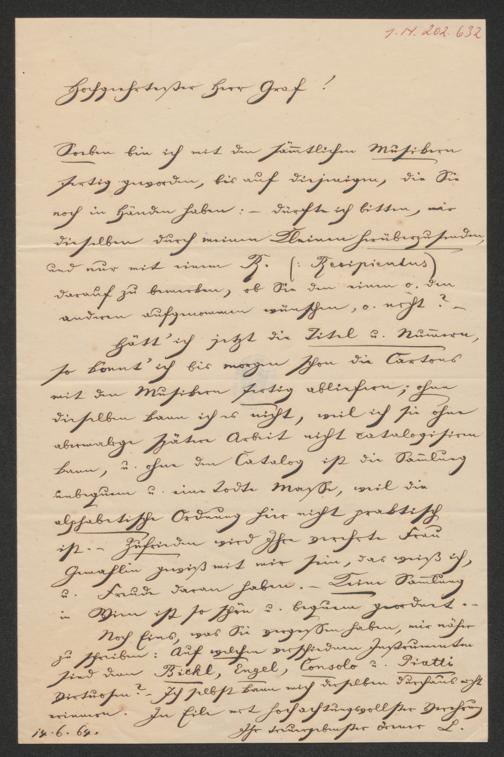 I.N. 202.632
Hochgeehrtester Herr Graf!
Soeben bin ich mit den sämtlichen Musikern
fertig geworden, bis auf diejenigen, die Sie
noch in Händen haben: – dürfte ich bitten, mir
dieselben durch meinen Kleinen herüberzusenden,
und nur mit einem R. (: Recipiatur)
darauf zu bemerken, ob Sie den einen o. den
anderen aufgenommen wünschen, o. nicht? –
Hätt' ich jetzt die Titel u. Numern,
so könnt' ich bis morgen schon die Cartons
mit den Musikern fertig abliefern; ohne
dieselben kann ich es nicht, weil ich sie ohne
abermalige spätere Arbeit nicht catalogisiren
kann, u. ohne den Catalog ist die Samlung
unbequem u. eine todte Masse, weil die
alphabetische Ordnung hier nicht praktisch
ist. – Zufrieden wird Ihre verehrte Frau
Gemahlin gewiß mit mir sein, das weiß ich,
u. Freude daran haben. – Keine Samlung
in Wien ist so schön u. bequem geordnet. –
Noch Eins, was Sie vergessen haben, mir näher
zu schreiben: Auf welchen verschiedenen Instrumenten
sind denn Bickl, Engel, Consolo u. Piatti
Virtuosen? – Ich selbst kann mich derselben durchaus nicht
erinnern. In Eile mit hochachtungsvollster Verehrung
14.6.64. Ihr treuergebenster L.